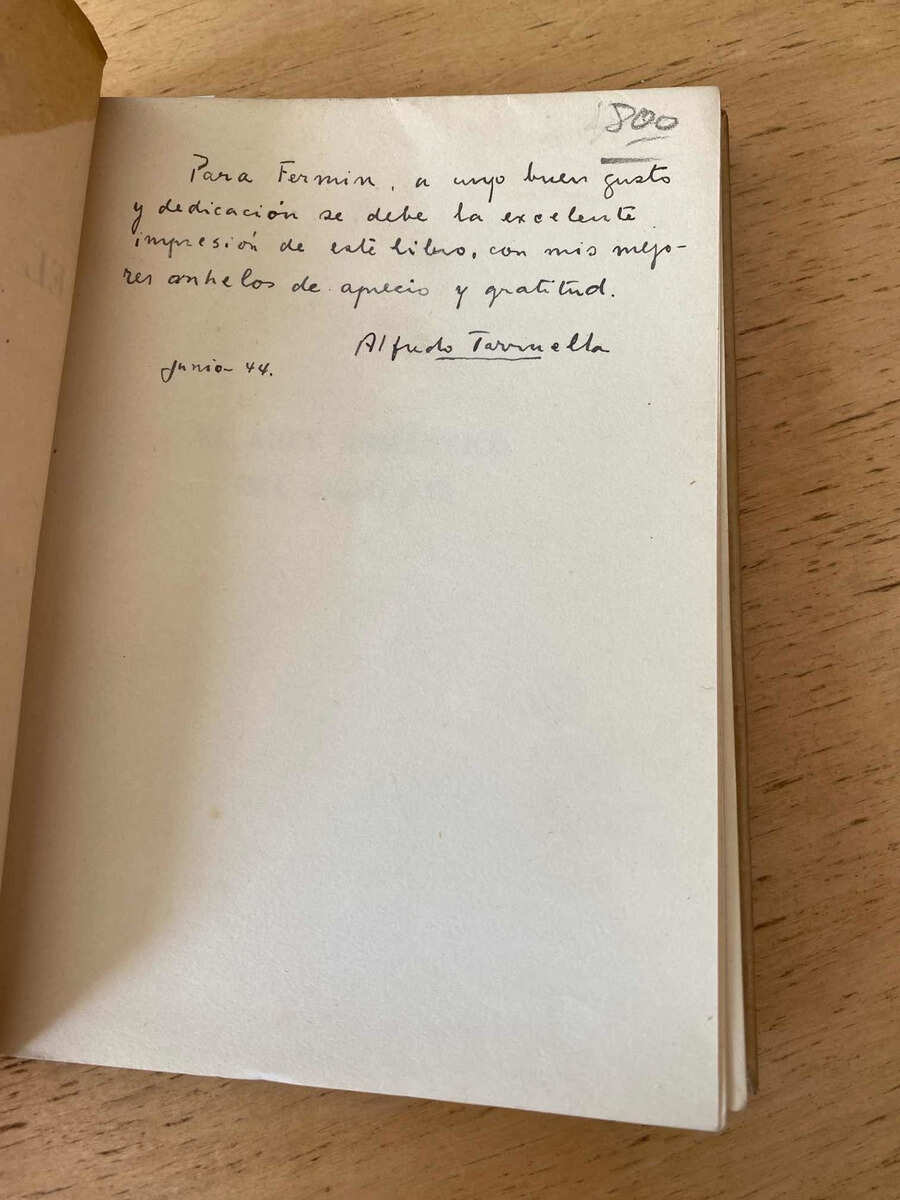 800
Para Fermin, a cuyo buen gusto
y dedicación se debe la excelente
impresión de este libro, con mis mejo-
res anhelos de aprecio y gratitud.
Alfredo Tarruella
Junio - 44.